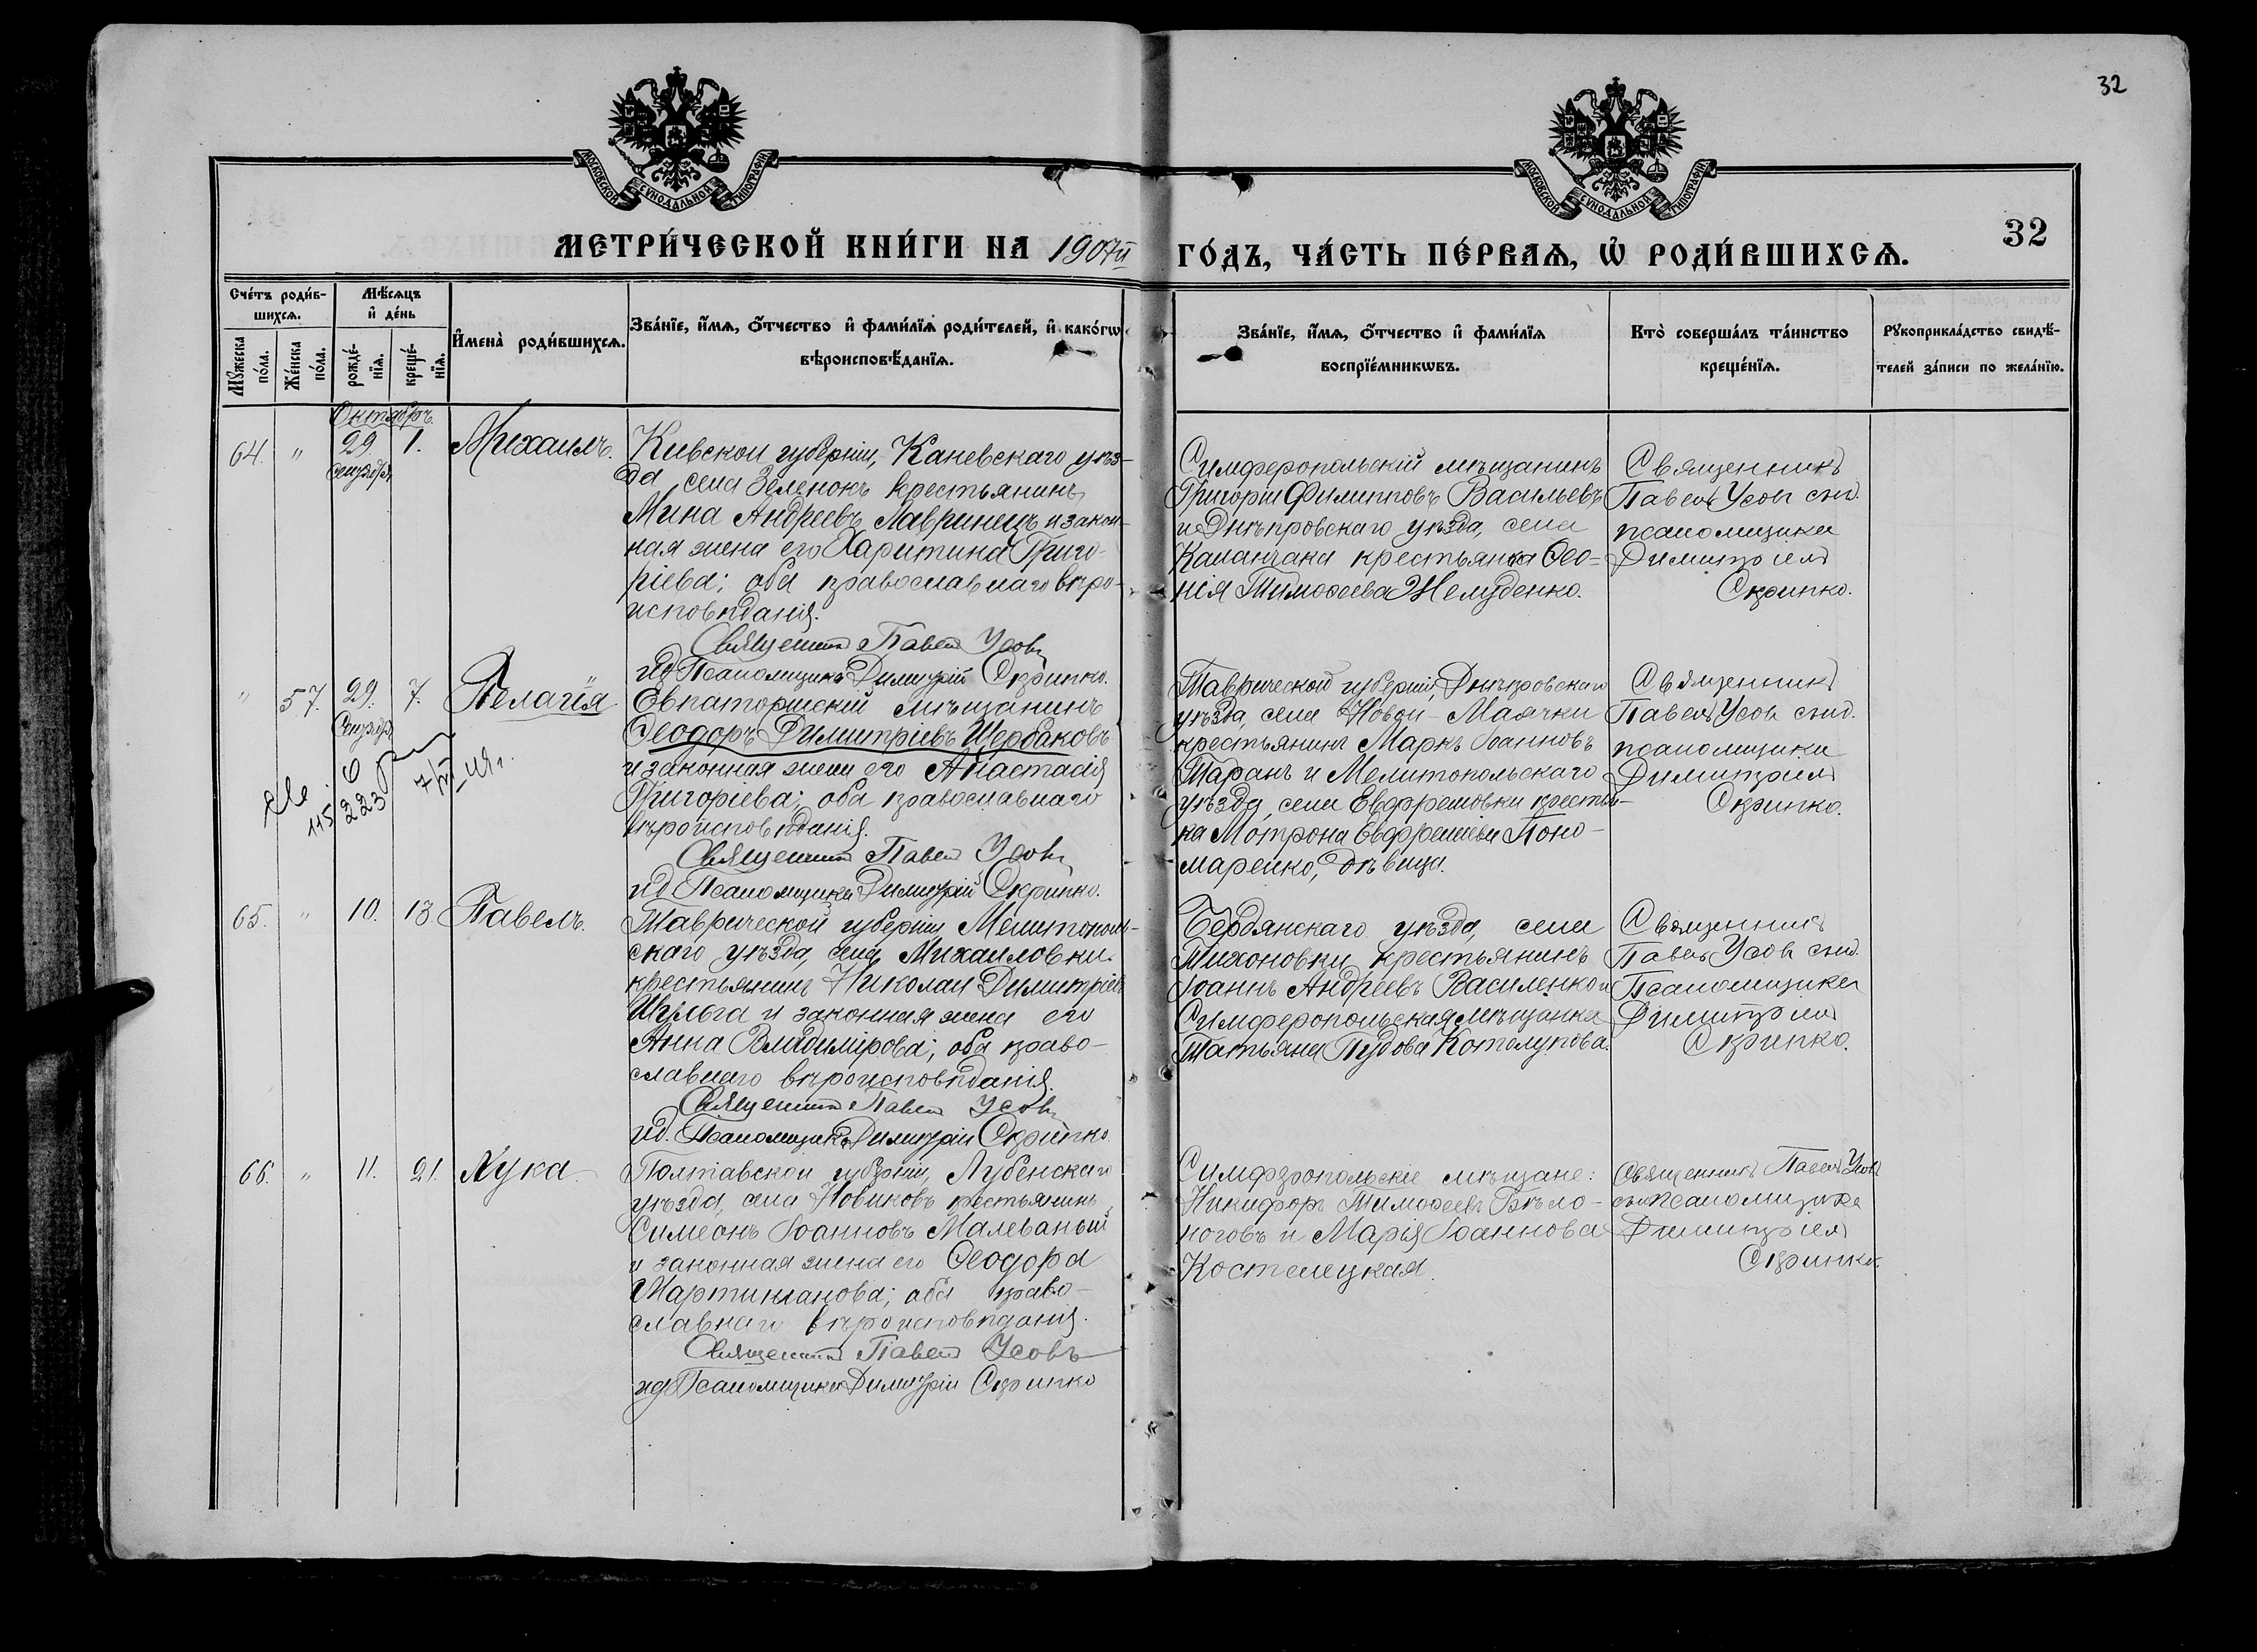 32
МОСКОВСКОЙ СѴНОДАЛЬНОЙ ТИПОГРАФІИ.
МОСКОВСКОЙ СѴНОДАЛЬНОЙ ТИПОГРАФІИ.
МЕТРИ́ЧЕСКОЙ КНИ́ГИ НА 1907й ГО́ДЪ, ЧА́СТЬ ПЕ́РВАѦ, Ѡ҆ РОДИ́ВШИХСѦ.
32
Сче́тъ роди́в-
шихсѧ.
Мꙋ́жеска
по́ла.
Же́нска
по́ла.
Мѣ́сѧцъ
и҆ де́нь
рожде́-
нїѧ.
креще́-
нїѧ.
И҆мена̀ роди́вшихсѧ.
Зва́нїе, и҆́мѧ, ѻ҆́тчество и҆ фами́лїѧ роди́телей, и҆ како́гѡ
вѣроисповѣ́данїѧ.
Зва́нїе, и҆́мѧ, ѻ҆́тчество и҆ фами́лїѧ
воспрїе́мникѡвъ.
Кто̀ соверша́лъ та́инство
креще́нїѧ.
Рꙋкоприкла́дство свидѣ́-
телей за́писи по жела́нїю.
Октябрь.
64. " 29. 1. Михаилъ.
сентября
Кіевской губерніи, Каневскаго уѣз-
да села Зеленокъ крестьянинъ
Мина Андреевъ Лавринецъ и закон-
ная жена его Харитина Григо-
ріева; оба православнаго вѣро-
исповѣданія.
Священникъ Павелъ Усовъ
ид Псаломщика Димитрій Скрипко.
Симферопольскій мѣщанинъ
Григорій Филипповъ Васильевъ
и Днѣпровскаго уѣзда, села
Каланчака крестьянка Ѳео-
нія Тимоѳеева Желуденко.
Священникъ
Павелъ Усовъ съ и.д.
псаломщика
Димитріемъ
Скрипко.
" 57. 29. 7. Пелагія
Сентября
Евпаторійскій мѣщанинъ
Ѳеодоръ Димитріевъ Щербаковъ
и законная жена его Анастасія
Григоріева; оба православнаго
вѣроисповѣданія.
Священникъ Павелъ Усовъ
ид Псаломщика Димитрій Скрипко.
Таврической губерніи, Днѣпровскаго
уѣзда, села Новой-Маячки
крестьянинъ Маркъ Іоанновъ
Таранъ и Мелитопольскаго
уѣзда, села Ефремовки крестьян-
ка Мотрона Евфремова Поно-
маренко, дѣвица.
Священникъ
Павелъ Усовъ съ и.д.
псаломщика
Димитріемъ
Скрипко.
115 223
65. " 10. 13 Павелъ.
Таврической губерніи Мелитополь-
скаго уѣзда, села Михайловки
крестьянинъ Николай Димитріевъ
Шульга и законная жена его
Анна Владимірова; оба право-
славнаго вѣроисповѣданія.
Священникъ Павелъ Усовъ
ид. Псаломщика Димитрій Скрипко
Бердянскаго уѣзда, села
Тихоновки крестьянинъ
Іоаннъ Андреевъ Василенко и
Симферопольская мѣщанка
Татьяна Пудова Котолупова.
Священникъ
Павелъ Усовъ съ и.д.
Псаломщика
Димитріемъ
Скрипко.
66. " 11. 21. Лука
Полтавской губерніи, Лубенскаго
уѣзда, села Новиковъ крестьянинъ
Симеонъ Іоанновъ Малеваный
и законная жена его Ѳеодора
Мартиніанова; оба право-
славнаго вѣроисповѣданія.
Священникъ Павелъ Усовъ
ид Псаломщика Димитрій Скрипко
Симферопольскіе мѣщане:
Никифоръ Тимоѳеевъ Бѣло-
ноговъ и Марія Іоаннова
Костелецкая.
Священникъ Павелъ Усовъ
съ и.д. псаломщика
Димитріемъ
Скрипко.